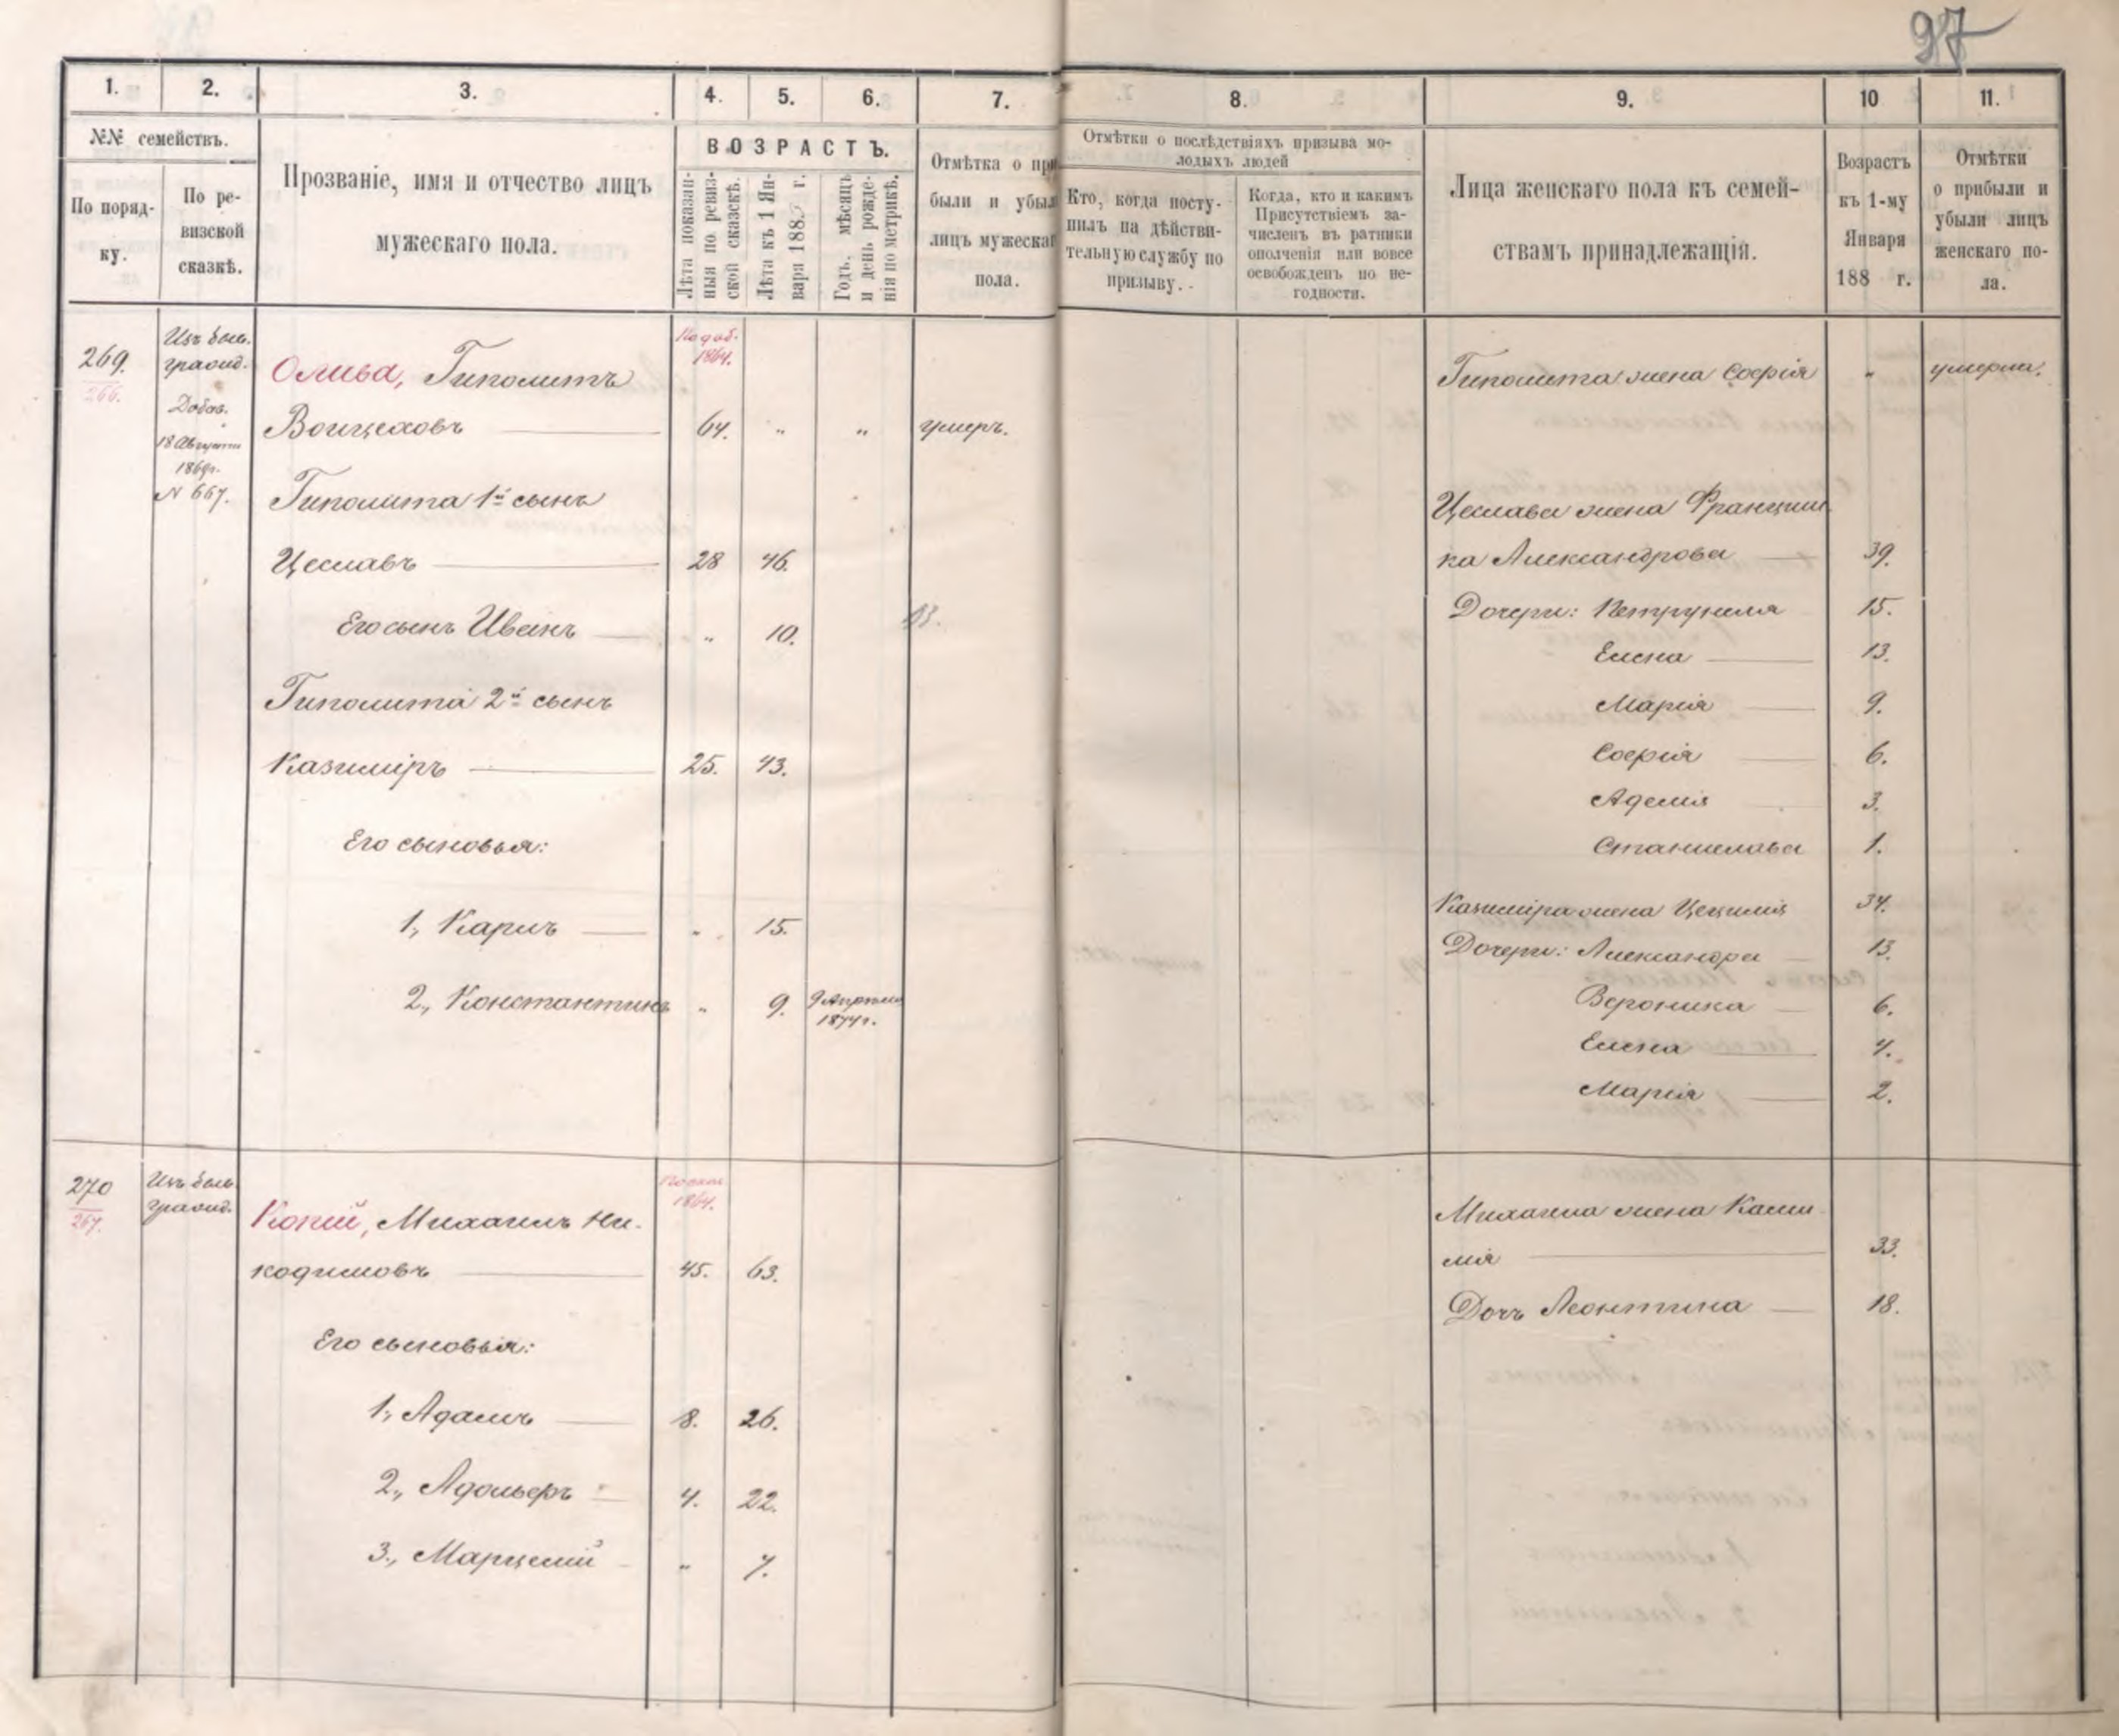 97
1.
2.
3.
4.
5.
6.
7.
8.
9.
10
11.
№№ семействъ.
По поряд-
ку.
По ре-
визской
сказкѣ.
Прозваніе, имя и отчество лицъ
мужескаго пола.
ВОЗРАСТЪ.
Лѣта показан-
ныя по ревиз-
ской сказскѣ.
Лѣта къ 1 Ян-
варя 1883 г.
Годъ, мѣсяцъ
и день рожде-
нія по метрикѣ.
Отмѣтка о при
были и убыл
лицъ мужескаг
пола.
Отмѣтки о послѣдствіяхъ призыва мо-
лодыхъ людей
Кто, когда посту-
пилъ на дѣйстви-
тельную службу по
призыву.
Когда, кто и какимъ
Присутствіемъ за-
численъ въ ратники
ополченія или вовсе
освобожденъ по не-
годности.
Лица женскаго пола къ семей-
ствамъ принадлежащія.
Возрастъ
къ 1-му
Января
188 г.
Отмѣтки
о прибыли и
убыли лицъ
женскаго по-
ла.
269.
266.
Изъ бол.
гражд.
Добав.
18 Августа
1869г.
N 667.
Олива, Гиполитъ
1864.
Воицеховъ 64. " " умеръ.
Гиполита 1й сынъ
Цеславъ 28 46.
Его сынъ Иванъ " 10.
Гиполита 2й сынъ
Казиміръ 25. 43.
Его сыновья:
1, Карлъ " 15.
2, Константинъ " 9. 9 Апрѣля
1874г.
Гиполита жена Софія " умерла.
Цеслава жена Францишка
ка Александрова 39.
Дочери: Петрунеля 15.
Елена 13.
Марія 9.
Софія 6.
Аделія 3.
Станислава 1.
Казиміра жена Цецилія 34.
Дочери: Александра 13.
Вероника 6.
Елена 4.
Марія 2.
270
267.
гражд.
Копій, Михаилъ Ни-
1864.
кодимовъ 45. 63.
Его сыновья:
1, Адамъ 8. 26.
2, Адольфъ 4. 22.
3, Марцелій " 7.
Михаила жена Ками-
лія 33.
Дочь Леонтина 18.